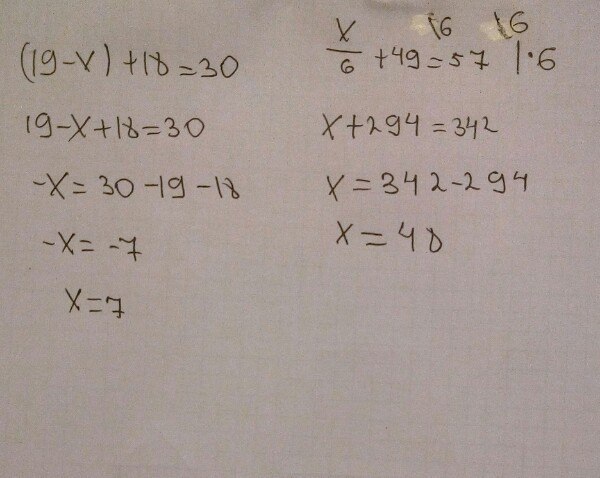 (19-x)+18=30
19-x+18=30
-x=30-19-18
-x=-7
x=7
\6 \6
x/6+49=57 |·6
x+294=342
x=342-294
x=48